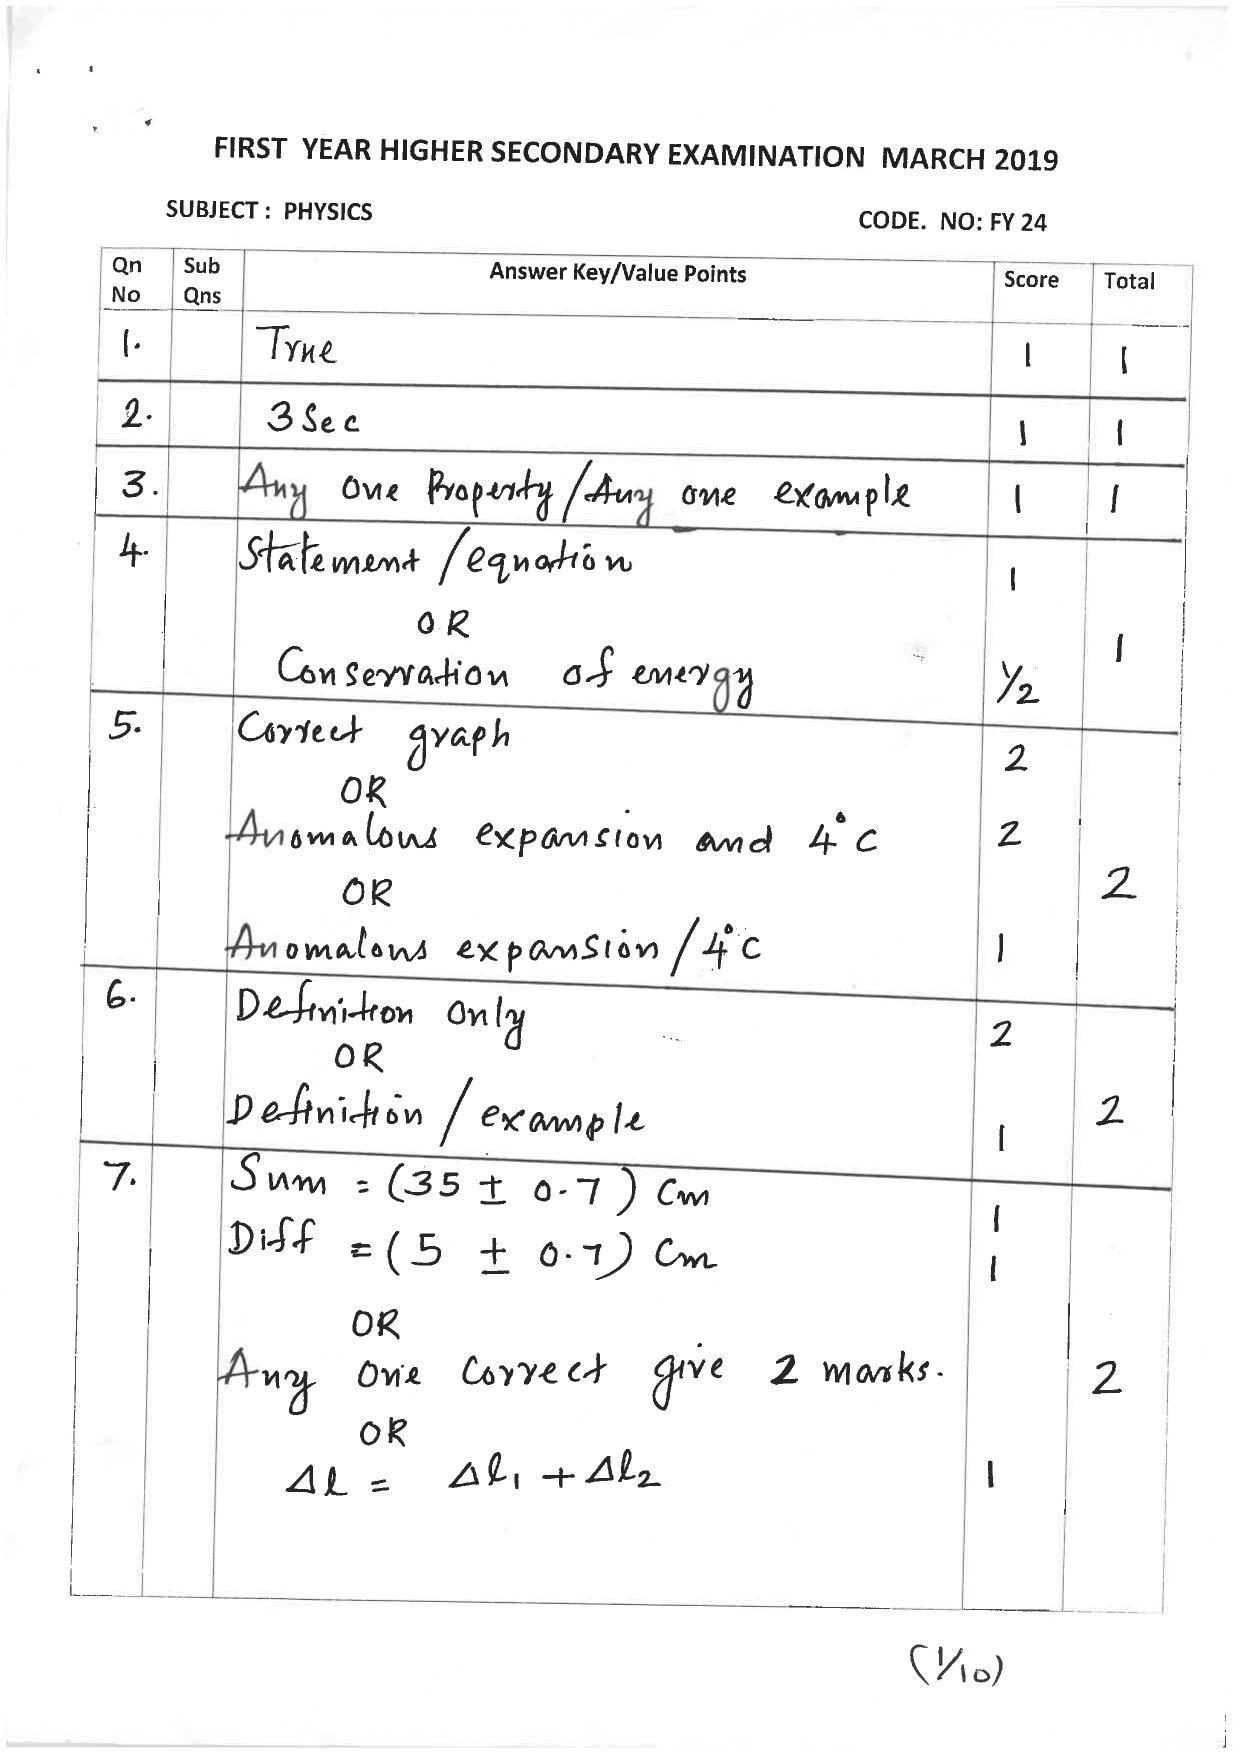 FIRST YEAR HIGHER SECONDARY EXAMINATION MARCH 2019
SUBJECT : PHYSICS
CODE. NO: FY 24
Qn No Sub Qns Answer Key/Value Points Score Total
1. True 1 1
2. 3 Sec 1 1
3. Any one Property/Any one example 1 1
4. Statement /equation 1
OR
1
Conservation of energy 1/2
5. Correct graph 2
OR
Anomalous expansion and 4°C 2
OR
2
Anomalous expansion /4°C 1
6. Definition Only 2
OR
Definition / example 1
2
7. Sum = (35 ± 0.7) Cm 1
Diff = (5 ± 0.7) Cm 1
OR
Any One Correct give 2 marks. 2
OR
Δℓ = Δℓ₁ + Δℓ₂ 1
(1/10)